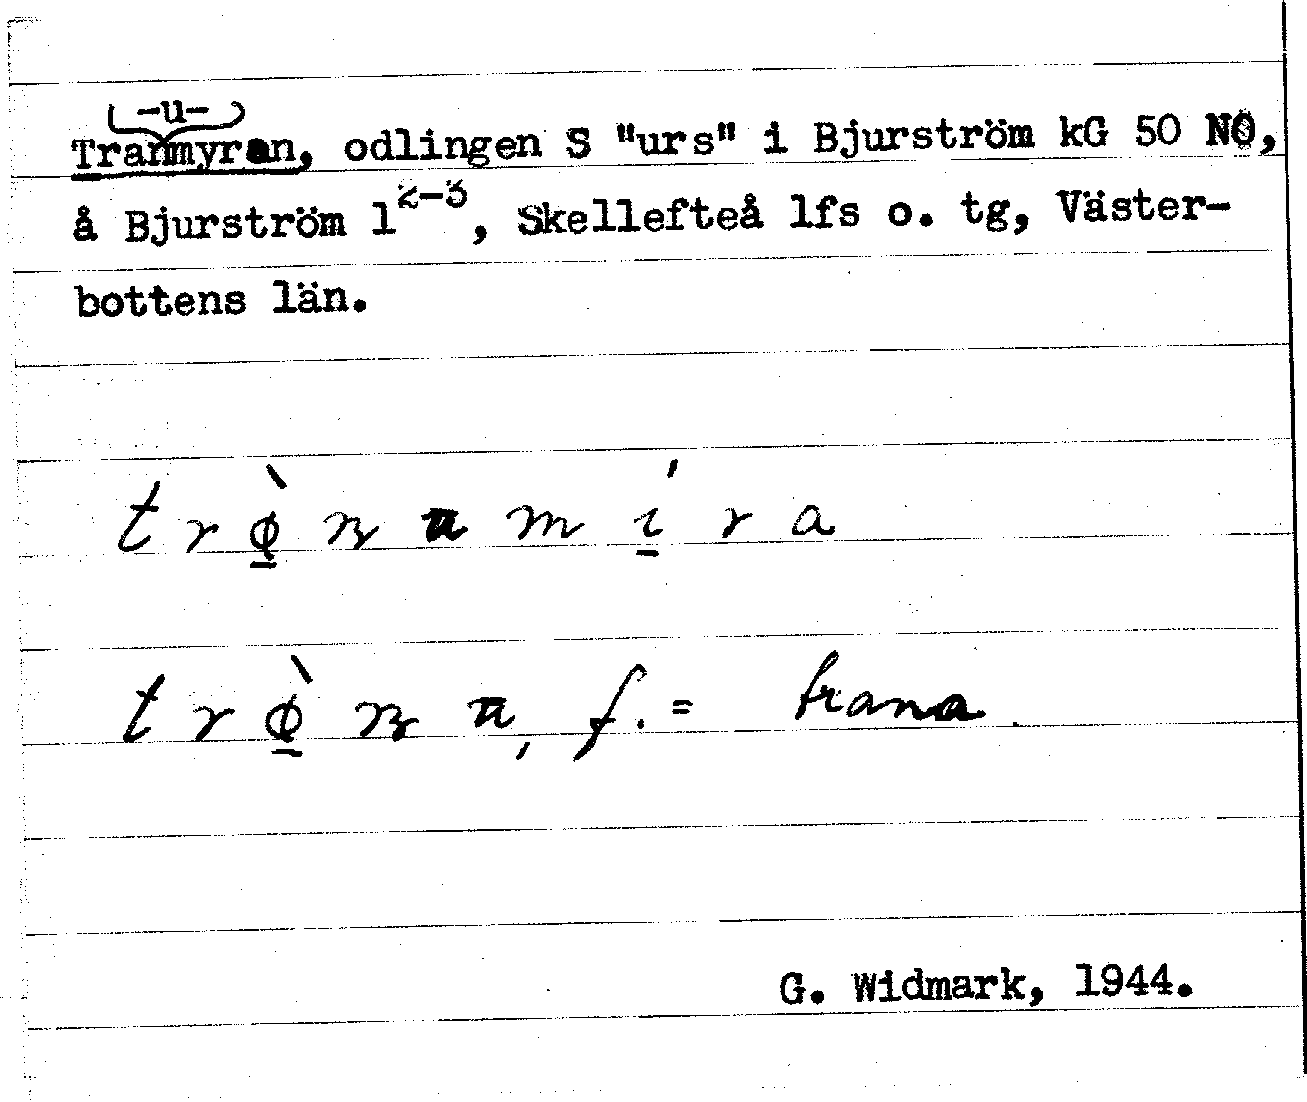 -u-
Tranmyran, odlingen S "urs" i Bjurström kG 50 NO,
å Bjurström 1²⁻³, Skellefteå lfs o. tg, Väster-
bottens län.
trø̲̀namí̲ra
trø̲̀na, f. = trana.
G. Widmark, 1944.